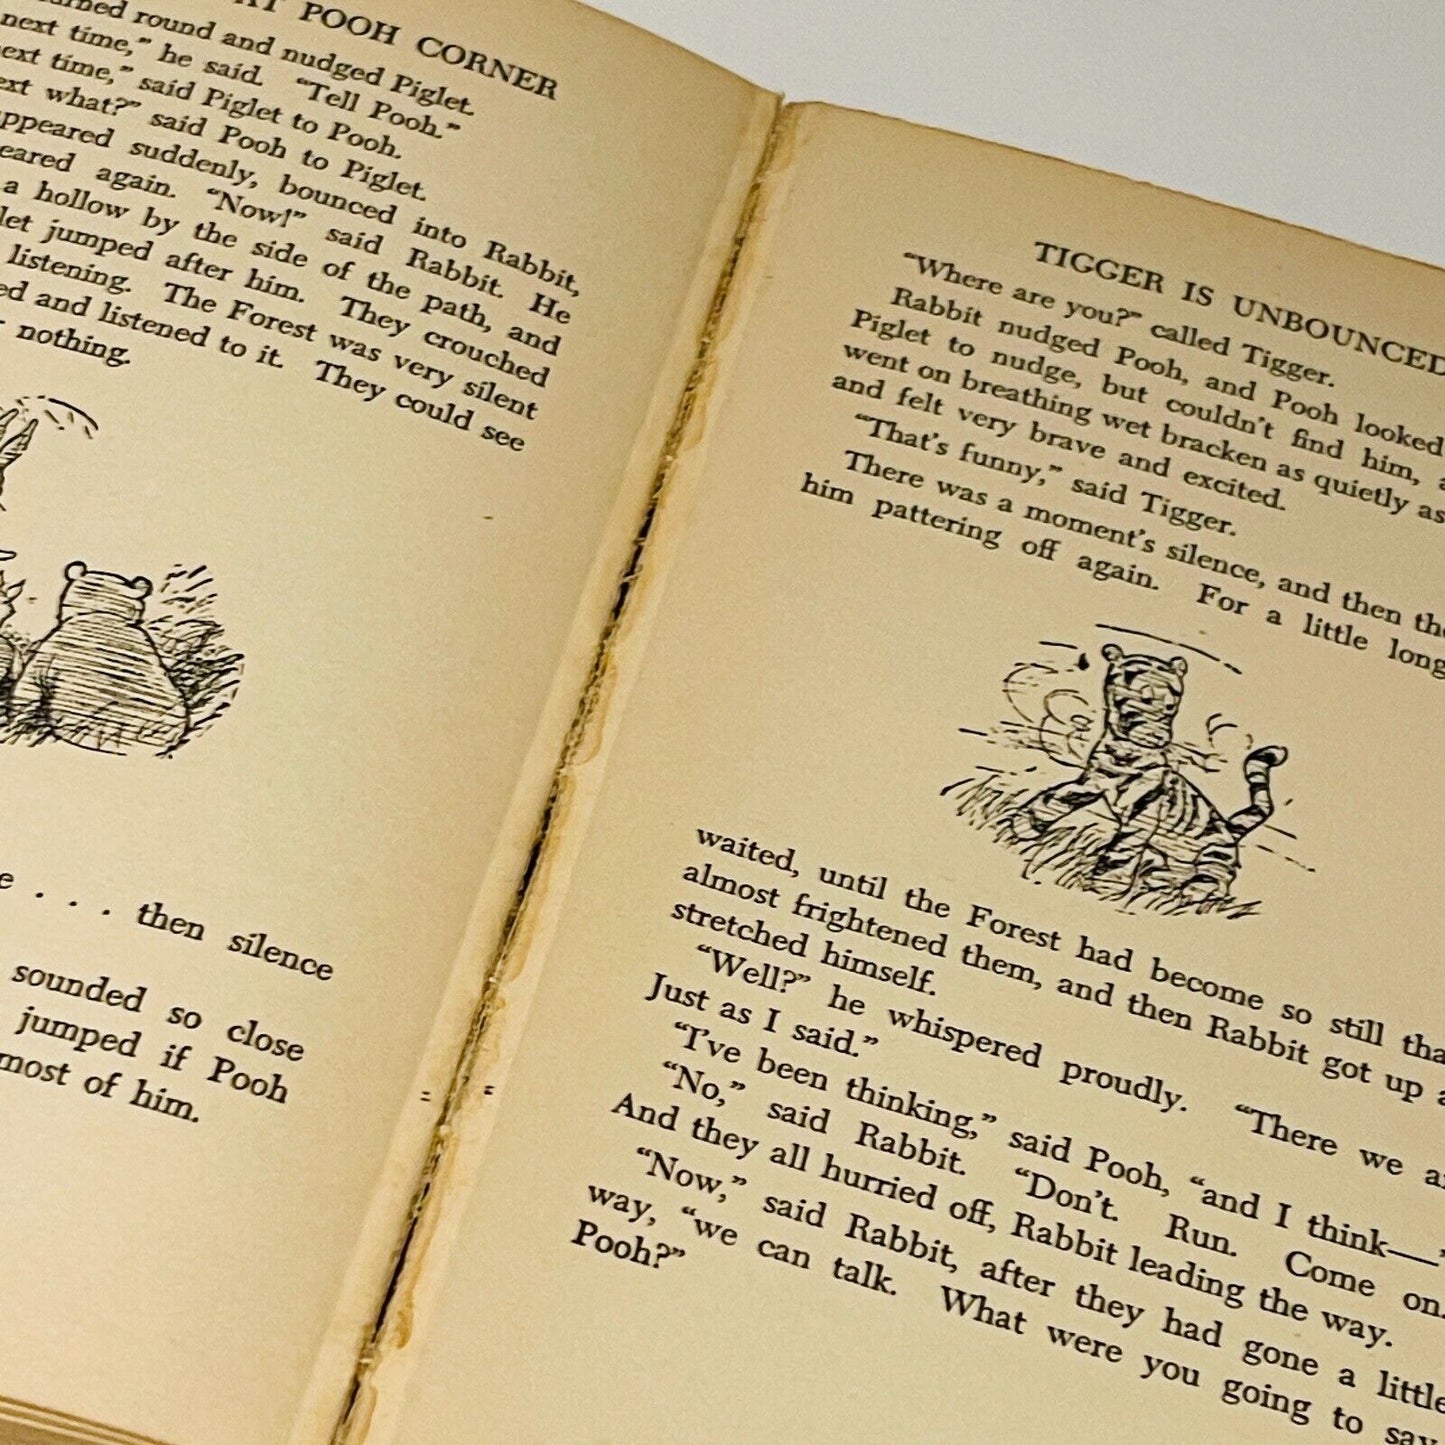 AT POOH CORNER
round and nudged Piglet.
next time,” he said. “Tell Pooh.”
next time,” said Piglet to Pooh.
what?” said Pooh to Piglet.
suddenly, bounced into Rabbit,
again. “Now!” said Rabbit. He
a hollow by the side of the path, and
jumped after him. They crouched
listening. The Forest was very silent
and listened to it. They could see
nothing.
. . . then silence
sounded so close
jumped if Pooh
most of him.
TIGGER IS UNBOUNCED
“Where are you?” called Tigger.
Rabbit nudged Pooh, and Pooh looked
Piglet to nudge, but couldn’t find him,
went on breathing wet bracken as quietly as
and felt very brave and excited.
“That’s funny,” said Tigger.
There was a moment’s silence, and then
him pattering off again. For a little
waited, until the Forest had become so still
almost frightened them, and then Rabbit got up
stretched himself.
“Well?” he whispered proudly. “There we
Just as I said.”
“I’ve been thinking,” said Pooh, “and I think—”
“No,” said Rabbit. “Don’t. Run. Come on.
And they all hurried off, Rabbit leading the way.
“Now,” said Rabbit, after they had gone a little
way, “we can talk. What were you going to say,
Pooh?”